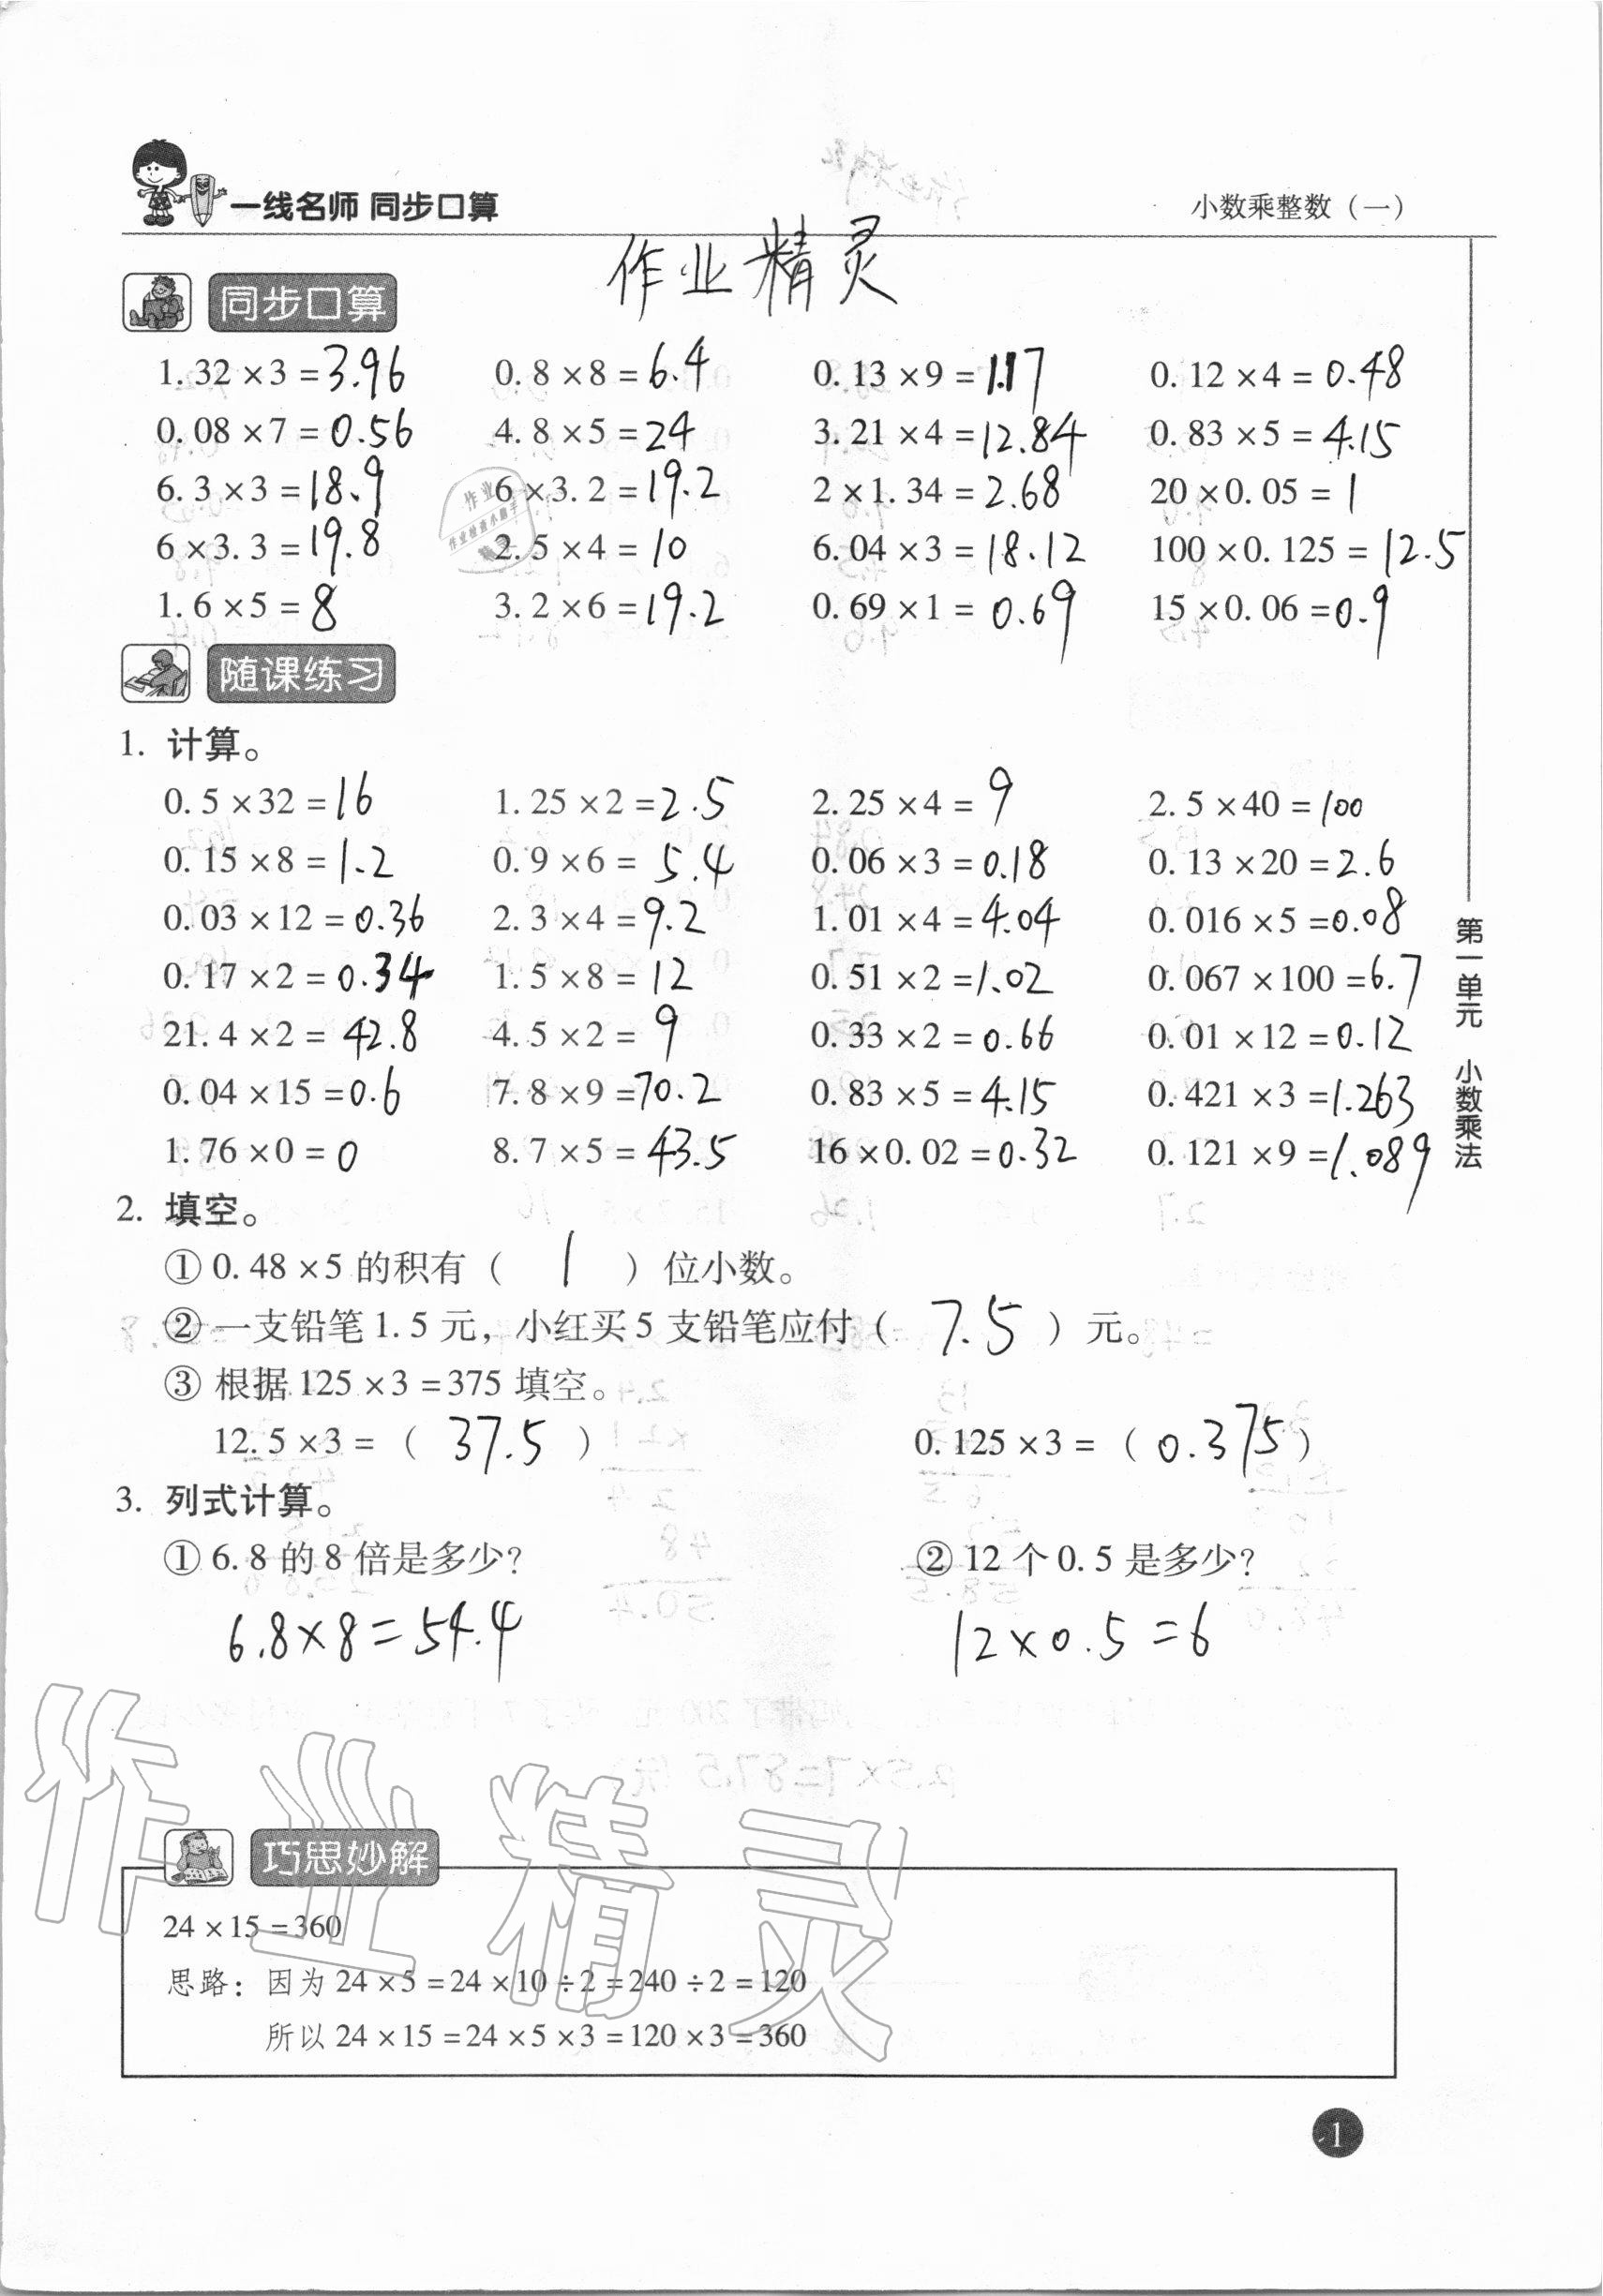 一线名师 同步口算
小数乘整数（一）
作业精灵
同步口算
1.32×3=3.96 0.8×8=6.4 0.13×9=1.17 0.12×4=0.48
0.08×7=0.56 4.8×5=24 3.21×4=12.84 0.83×5=4.15
6.3×3=18.9 6×3.2=19.2 2×1.34=2.68 20×0.05=1
6×3.3=19.8 2.5×4=10 6.04×3=18.12 100×0.125=12.5
1.6×5=8 3.2×6=19.2 0.69×1=0.69 15×0.06=0.9
随课练习
1. 计算。
0.5×32=16 1.25×2=2.5 2.25×4=9 2.5×40=100
0.15×8=1.2 0.9×6=5.4 0.06×3=0.18 0.13×20=2.6
0.03×12=0.36 2.3×4=9.2 1.01×4=4.04 0.016×5=0.08
0.17×2=0.34 1.5×8=12 0.51×2=1.02 0.067×100=6.7
21.4×2=42.8 4.5×2=9 0.33×2=0.66 0.01×12=0.12
0.04×15=0.6 7.8×9=70.2 0.83×5=4.15 0.421×3=1.263
1.76×0=0 8.7×5=43.5 16×0.02=0.32 0.121×9=1.089
2. 填空。
①0.48×5的积有（ 1 ）位小数。
②一支铅笔1.5元，小红买5支铅笔应付（ 7.5 ）元。
③根据125×3=375填空。
12.5×3=（ 37.5 ） 0.125×3=（ 0.375 ）
3. 列式计算。
①6.8的8倍是多少？ ②12个0.5是多少？
6.8×8=54.4 12×0.5=6
第一单元 小数乘法
作业精灵
巧思妙解
24×15=360
思路：因为24×5=24×10÷2=240÷2=120
所以24×15=24×5×3=120×3=360
1